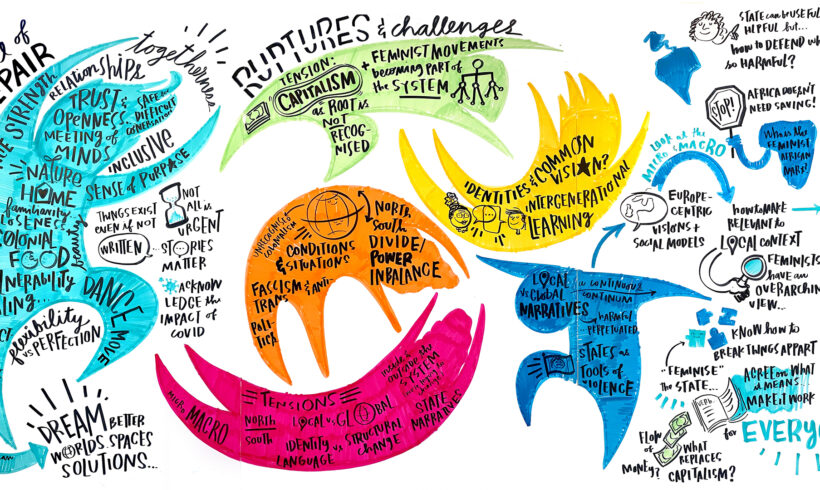 of
REPAIR
togetherness
RELATIONSHIPS
STRENGTH
TRUST &
OPENNESS
MEETING of
MINDS
SAFE for
DIFFICULT
CONVERSATIONS
INCLUSIVE
SENSE of PURPOSE
NATURE
HOME
familiarity
CLOSENESS
COLONIAL
FOOD
beauty
VULNERABILITY
DANCE MOVE
flexibility
vs PERFECTION
DREAM BETTER
WORLDS. SPACES
SOLUTIONS...
NOT
ALL is
URGENT
THINGS EXIST
EVEN if NOT
WRITTEN
...STORIES
MATTER
ACKNOW
LEDGE the
IMPACT of
COVID
RUPTURES & challenges
TENSION:
CAPITALISM
as ROOT is
NOT
RECOG-
NISED
+ FEMINIST MOVEMENTS
becoming PART of
the SYSTEM
IDENTITIES & COMMON
VISION?
INTERGENERATIONAL
LEARNING
UNRECOGNISED
COLONIALISM
CONDITIONS
& SITUATIONS
FASCISM & ANTI-
TRANS
POLI-
TICS
NORTH
South
DIVIDE/
POWER
INBALANCE
MICRO MACRO
TENSIONS
NORTH
South
LOCAL vs GLOBAL
IDENTITY vs STRUCTURAL
LANGUAGE
CHANGE
inside &
outside the
SYSTEM
STATE
NARRATIVES
LOCAL
vs Global
NARRATIVES
a CONTINUOUS
CONTINUUM
harmful
PERPETUATED.
STATES as
TOOLS of
VIOLENCE
STATE can be USEFUL
HELPFUL but...
how to DEFEND
so HARMFUL?
STOP!
AFRICA DOESN'T
NEED SAVING!
Who is the
FEMINIST
AFRICAN
LOOK at the
MICRO & MACRO
EUROPE-
CENTRIC
VISIONS +
SOCIAL MODELS
how to MAKE
RELEVANT to
LOCAL CONTEXT
FEMINISTS
have an
OVERARCHING
VIEW...
KNOW how to
BREAK THINGS APPART
"FEMINISE"
the STATE...
VERB.
AGREE on WHAT
it MEANS
MAKE it WORK
for EVERY
FLOW
of
MONEY?
WHAT
REPLACES
CAPITALISM?